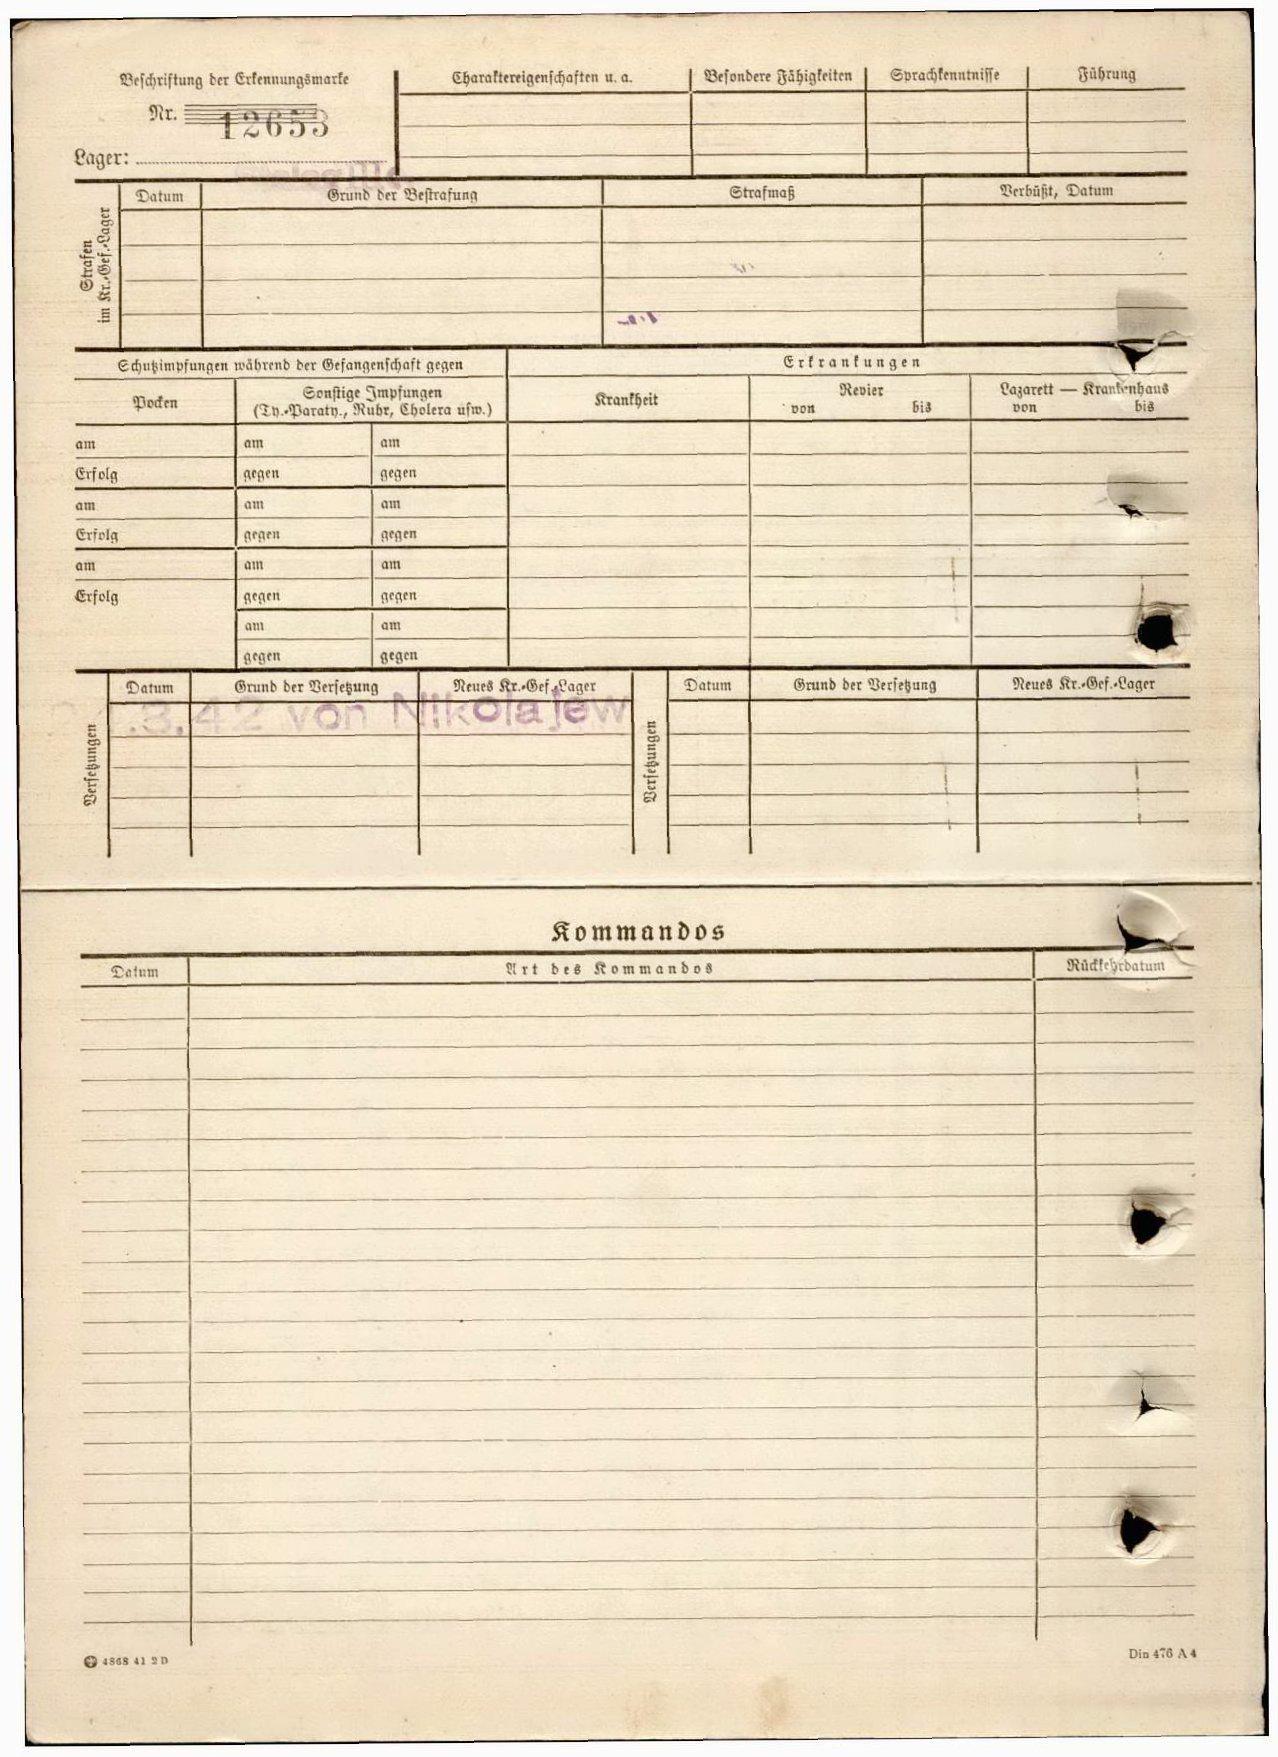 Beschriftung der Erkennungsmarke
Nr. 12653
Lager:
Charaktereigenschaften u. a. Besondere Fähigkeiten Sprachkenntnisse Führung
Strafen im Kr.-Gef.-Lager
Datum Grund der Bestrafung Strafmaß Verbüßt, Datum
Schutzimpfungen während der Gefangenschaft gegen
Pocken
Sonstige Impfungen
(Ty.-Paraty., Ruhr, Cholera usw.)
am am am
Erfolg gegen gegen
am am am
Erfolg gegen gegen
am am am
Erfolg gegen gegen
am am
gegen gegen
Erkrankungen
Krankheit
Revier
von bis
Lazarett — Krankenhaus
von bis
Versetzungen
Datum Grund der Versetzung Neues Kr.-Gef.-Lager
.3.42 von Nikolajew
Versetzungen
Datum Grund der Versetzung Neues Kr.-Gef.-Lager
Kommandos
Datum Art des Kommandos Rückkehrdatum
4868 41 2 D
Din 476 A 4